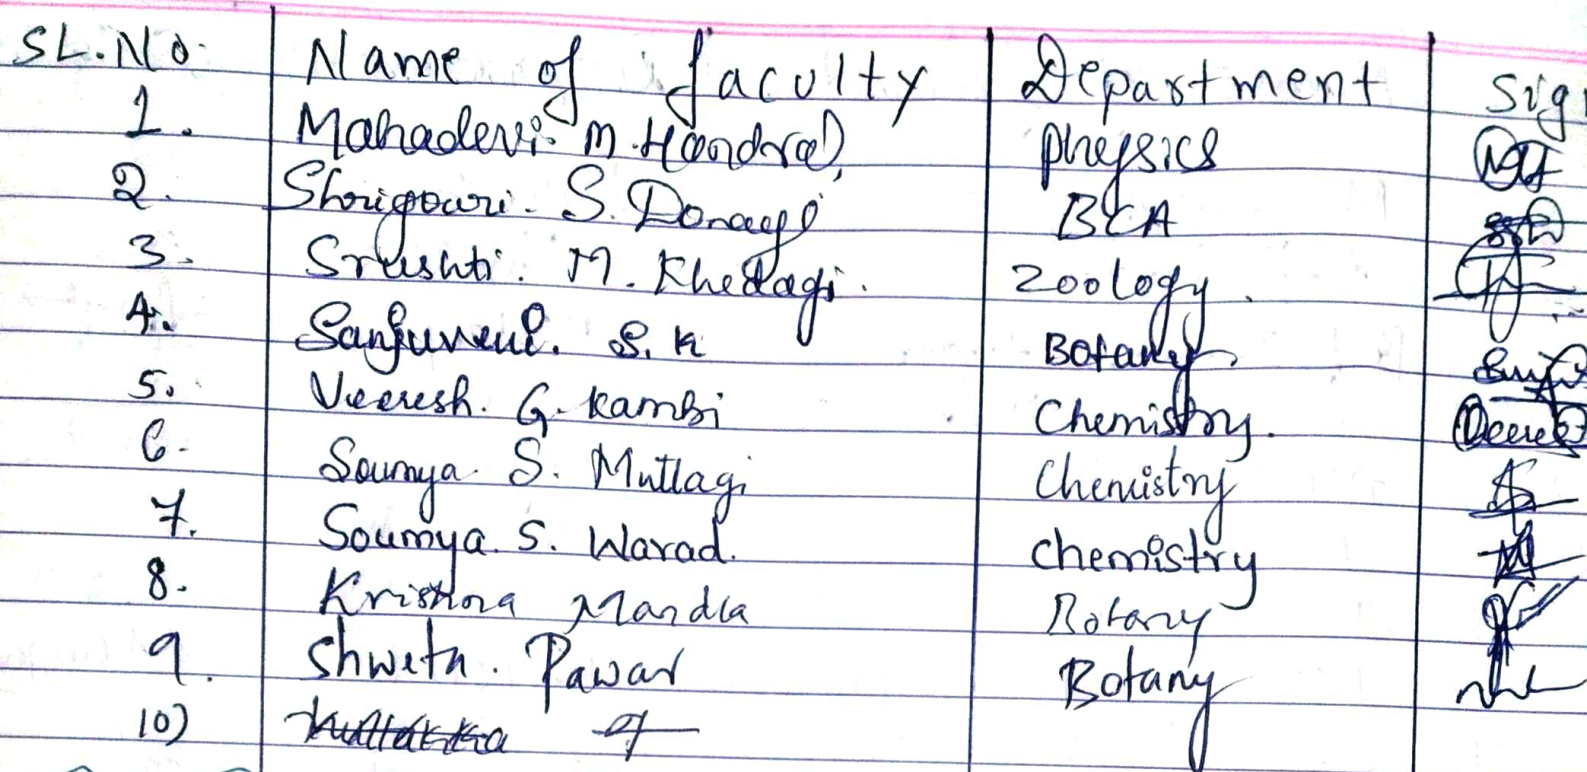 SL.No. Name of faculty Department Sig
1. Mahadevi. M. Handral, physics
2. Shrigouri. S. Donagi BCA
3. Srushti. M. Khedagi. Zoology.
4. Sanjuveni. S. K Botany.
5. Veeresh. G. Kambi Chemistry.
6. Soumya. S. Muttagi Chemistry
7. Soumya. S. Warad. chemistry
8. Krishna Mandla Botany
9. Shweta. Pawar Botany
10)